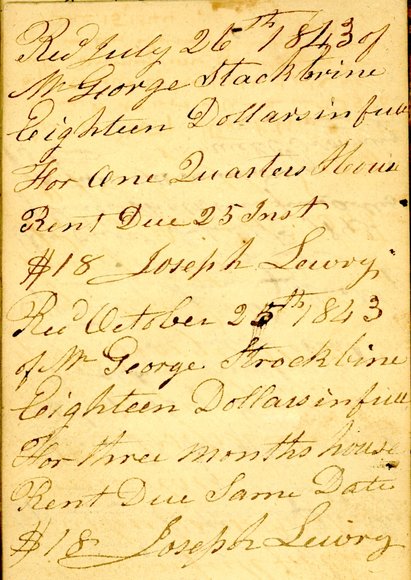 Recd July 26th 1843 of
Mr George Stackbine
Eighteen Dollars in full
For One Quarters House
Rent Due 25 Inst
$18 Joseph Lewry
Recd October 25th 1843
of Mr George Strackbine
Eighteen Dollars in full
For three months house
Rent Due Same Date
$18 Joseph Lewry